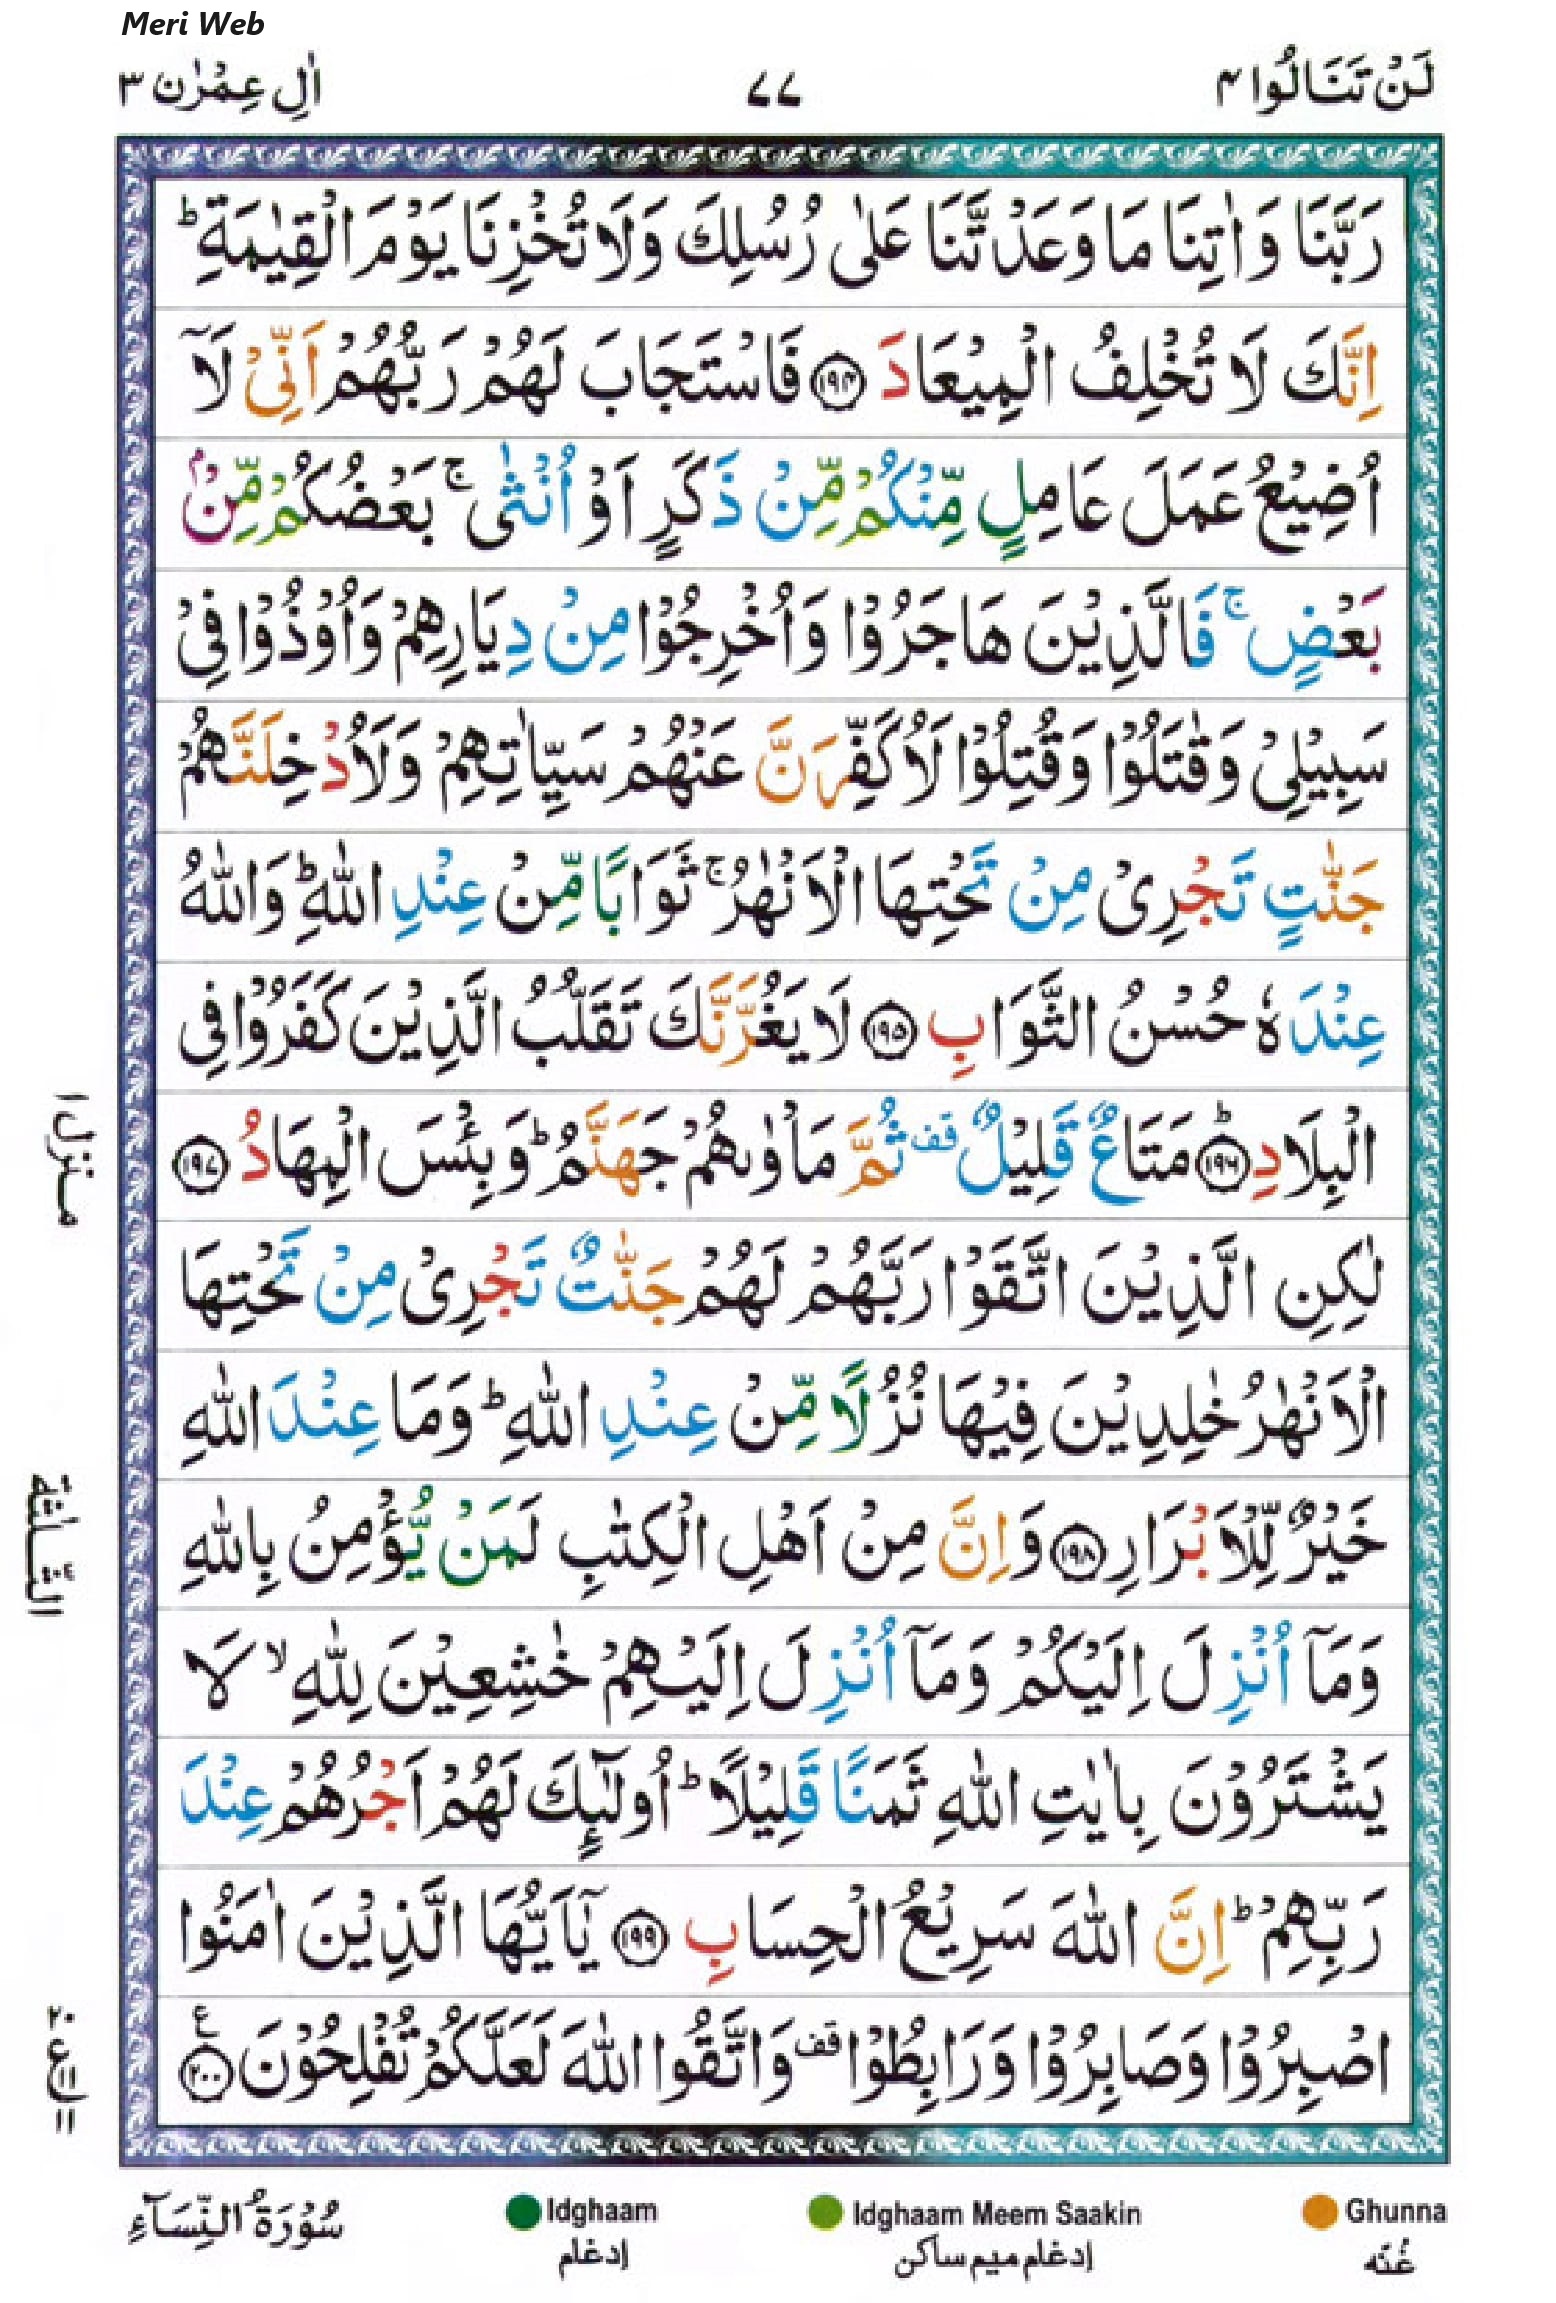 Meri Web
لَنْ تَنَالُوا ٤
٧٧
اٰلِ عِمْرٰن ٣
رَبَّنَا وَاٰتِنَا مَا وَعَدْتَّنَا عَلٰى رُسُلِكَ وَلَا تُخْزِنَا يَوْمَ الْقِيٰمَةِ ؕ
اِنَّكَ لَا تُخْلِفُ الْمِيْعَادَ ۝١٩٤ فَاسْتَجَابَ لَهُمْ رَبُّهُمْ اَنِّيْ لَاۤ
اُضِيْعُ عَمَلَ عَامِلٍ مِّنْكُمْ مِّنْ ذَكَرٍ اَوْ اُنْثٰى ۚ بَعْضُكُمْ مِّنْۢ
بَعْضٍ ۚ فَالَّذِيْنَ هَاجَرُوْا وَاُخْرِجُوْا مِنْ دِيَارِهِمْ وَاُوْذُوْا فِيْ
سَبِيْلِيْ وَقٰتَلُوْا وَقُتِلُوْا لَاُكَفِّرَنَّ عَنْهُمْ سَيِّاٰتِهِمْ وَلَاُدْخِلَنَّهُمْ
جَنّٰتٍ تَجْرِيْ مِنْ تَحْتِهَا الْاَنْهٰرُ ۚ ثَوَابًا مِّنْ عِنْدِ اللّٰهِ ؕ وَاللّٰهُ
عِنْدَهٗ حُسْنُ الثَّوَابِ ۝١٩٥ لَا يَغُرَّنَّكَ تَقَلُّبُ الَّذِيْنَ كَفَرُوْا فِى
الْبِلَادِ ؕ۝١٩٦ مَتَاعٌ قَلِيْلٌ ۟قف ثُمَّ مَاْوٰىهُمْ جَهَنَّمُ ؕ وَبِئْسَ الْمِهَادُ ۝١٩٧
لٰكِنِ الَّذِيْنَ اتَّقَوْا رَبَّهُمْ لَهُمْ جَنّٰتٌ تَجْرِيْ مِنْ تَحْتِهَا
الْاَنْهٰرُ خٰلِدِيْنَ فِيْهَا نُزُلًا مِّنْ عِنْدِ اللّٰهِ ؕ وَمَا عِنْدَ اللّٰهِ
خَيْرٌ لِّلْاَبْرَارِ ۝١٩٨ وَاِنَّ مِنْ اَهْلِ الْكِتٰبِ لَمَنْ يُّؤْمِنُ بِاللّٰهِ
وَمَاۤ اُنْزِلَ اِلَيْكُمْ وَمَاۤ اُنْزِلَ اِلَيْهِمْ خٰشِعِيْنَ لِلّٰهِ ۙ لَا
يَشْتَرُوْنَ بِاٰيٰتِ اللّٰهِ ثَمَنًا قَلِيْلًا ؕ اُولٰٓئِكَ لَهُمْ اَجْرُهُمْ عِنْدَ
رَبِّهِمْ ؕ اِنَّ اللّٰهَ سَرِيْعُ الْحِسَابِ ۝١٩٩ يٰۤاَيُّهَا الَّذِيْنَ اٰمَنُوا
اصْبِرُوْا وَصَابِرُوْا وَرَابِطُوْا ۟قف وَاتَّقُوا اللّٰهَ لَعَلَّكُمْ تُفْلِحُوْنَ ۝٢٠٠
منزل ١
الثلثة
ع
١١
سُوْرَةُ النِّسَآءِ
Idghaam
إدغام
Idghaam Meem Saakin
إدغام ميم ساكن
Ghunna
غُنّه